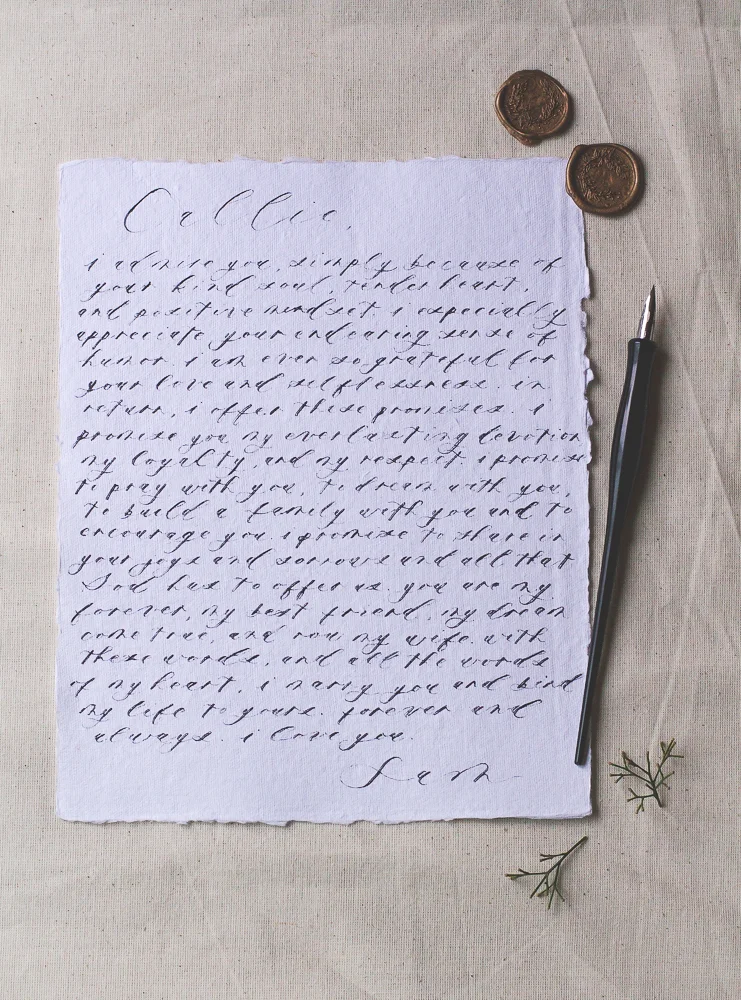 Callie,
i admire you, simply because of
your kind soul, tender heart,
and positive mindset. i especially
appreciate your endearing sense of
humor. i am ever so grateful for
your love and selflessness. in
return, i offer these promises. i
promise you my everlasting devotion,
my loyalty, and my respect. i promise
to pray with you, to dream with you,
to build a family with you and to
encourage you. i promise to share in
your joys and sorrows and all that
God has to offer us. you are my
forever, my best friend, my dream
come true, and now, my wife. with
these words, and all the words
of my heart, i marry you and bind
my life to yours. forever and
always. i love you.
Sam